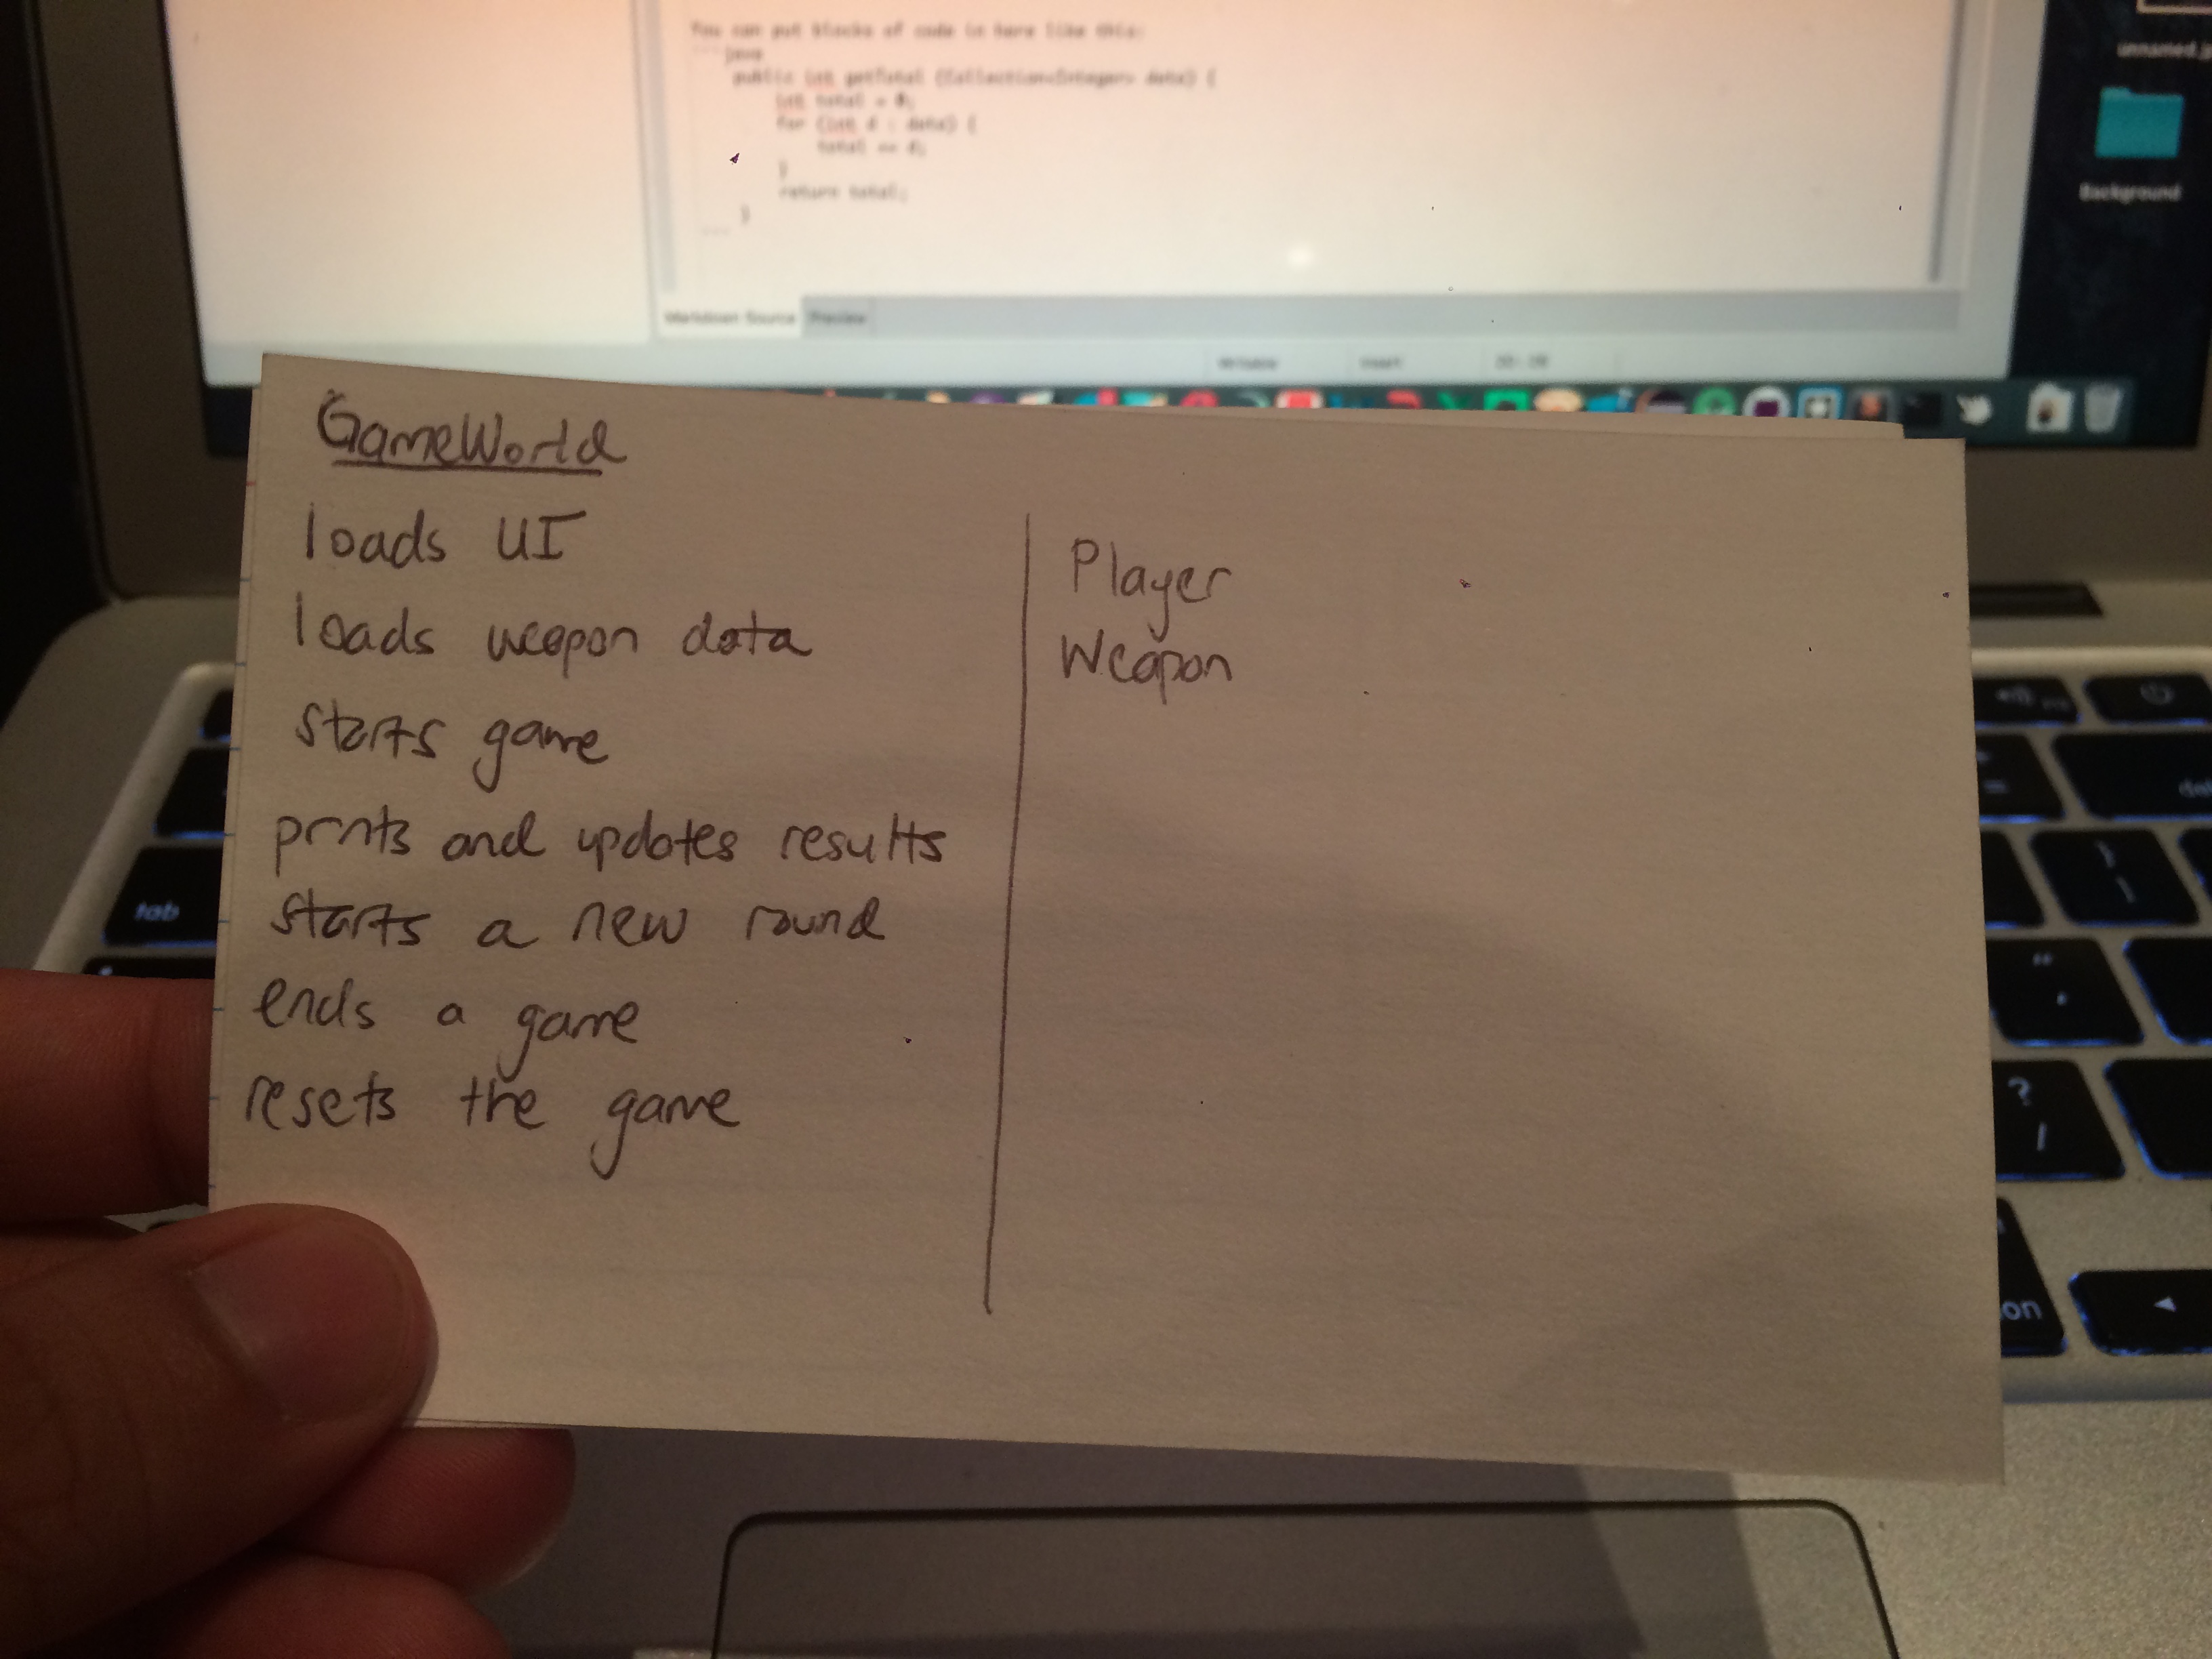 You can put blocks of code in here like this:
```java
public int getTotal (Collection<Integer> data) {
int total = 0;
for (int d : data) {
total += d;
}
return total;
}
```
Markdown Source Preview
Writable Insert
Background
GameWorld
loads UI
loads weapon data
starts game
prints and updates results
starts a new round
ends a game
resets the game
Player
Weapon
tab